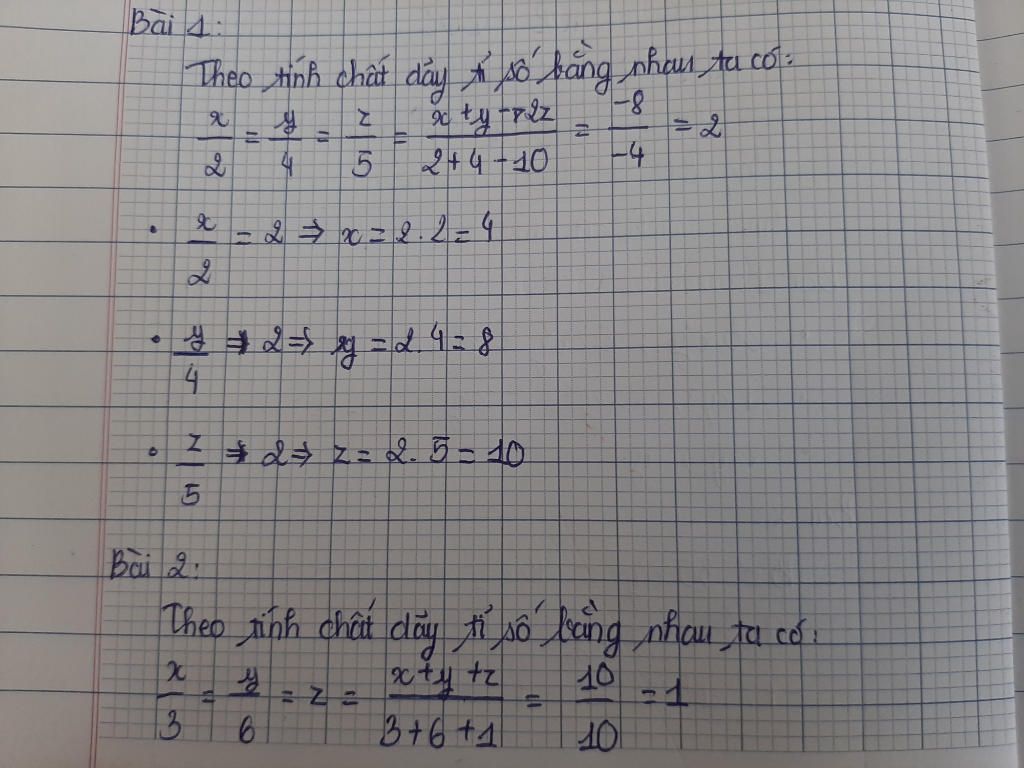 Bài 1:
Theo tính chất dãy tỉ số bằng nhau ta có:
x/2 = y/4 = z/5 = (x + y - 2z)/(2 + 4 - 10) = -8/-4 = 2
• x/2 = 2 ⇒ x = 2.2 = 4
• y/4 = 2 ⇒ y = 2.4 = 8
• z/5 = 2 ⇒ z = 2.5 = 10
Bài 2:
Theo tính chất dãy tỉ số bằng nhau ta có:
x/3 = y/6 = z = (x + y + z)/(3 + 6 + 1) = 10/10 = 1